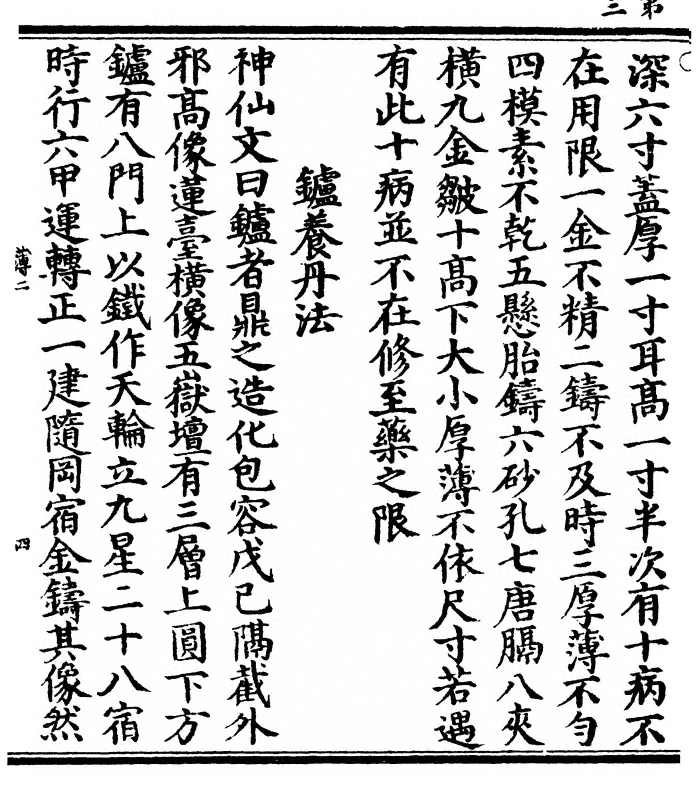 深六寸蓋厚一寸耳高一寸半次有十病不
在用限一金不精二鑄不及時三厚薄不勻
四模素不乾五懸胎鑄六砂孔七唐膈八夾
橫九金皺十高下大小厚薄不依尺寸若遇
有此十病並不在修至藥之限
鑪養丹法
神仙文曰鑪者鼎之造化包容戊己隔截外
邪高像蓮臺橫像五嶽壇有三層上圓下方
鑪有八門上以鐵作天輪立九星二十八宿
時行六甲運轉正一建隨罡宿金鑄其像然
薄二
四